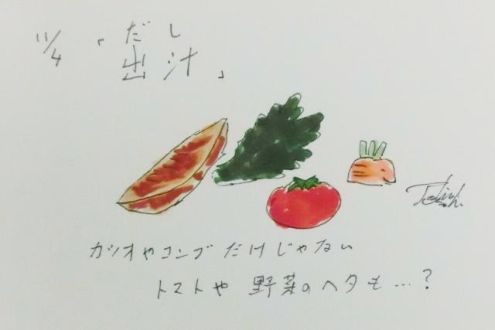 11/4 「出汁」
だし
カツオやコンブだけじゃない
トマトや 野菜のヘタも…?